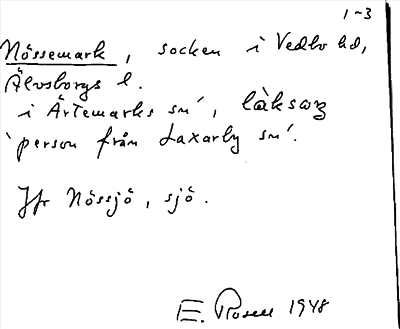 1-3
Nössemark, socken i Vedbo hd,
Älvsborgs l.
i Ärtemarks sn,
person från Laxarby sn.
Jfr Nössjö, sjö.
E. Rosell 1948